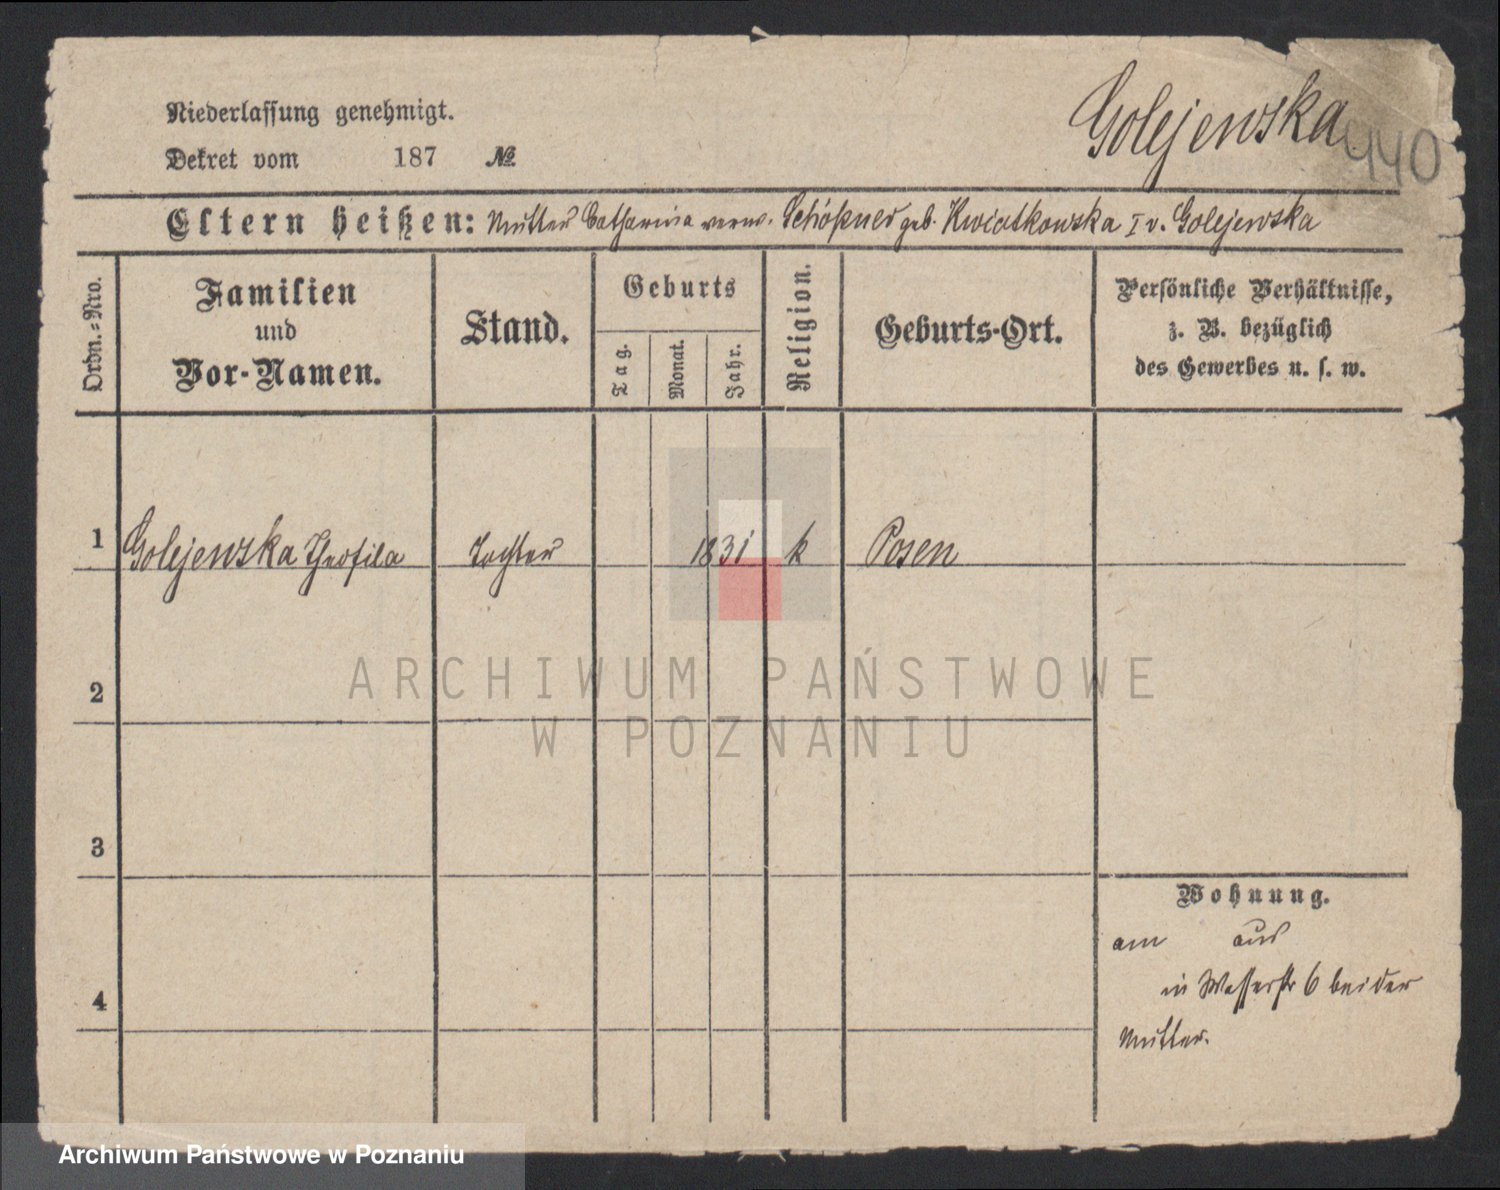 Niederlassung genehmigt.
Golejewska
440
Dekret vom 187 №
Eltern heißen: Mutter Catharina verw. Schöpner geb. Kwiatkowska I v. Golejewska
Ordn.-Nro.
Familien und Vor-Namen.
Stand.
Geburts
Tag.
Monat.
Jahr.
Religion.
Geburts-Ort.
Persönliche Verhältnisse,
z. B. bezüglich
des Gewerbes u. s. w.
1 Golejewska Theofila Tochter 1831 k Posen
2
3
4
Wohnung.
am aus
in Wasserstr 6 bei der
Mutter.
ARCHIWUM PAŃSTWOWE
W POZNANIU
Archiwum Państwowe w Poznaniu